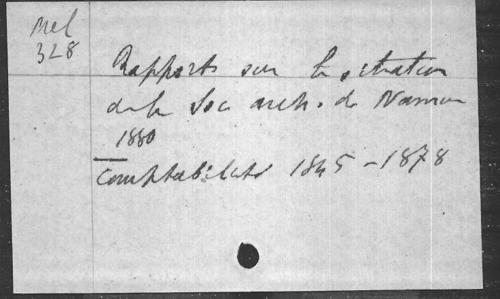 Mel
328
Rapports sur la situation
de la Soc arch. de Namur
1880
Comptabilité 1845-1878